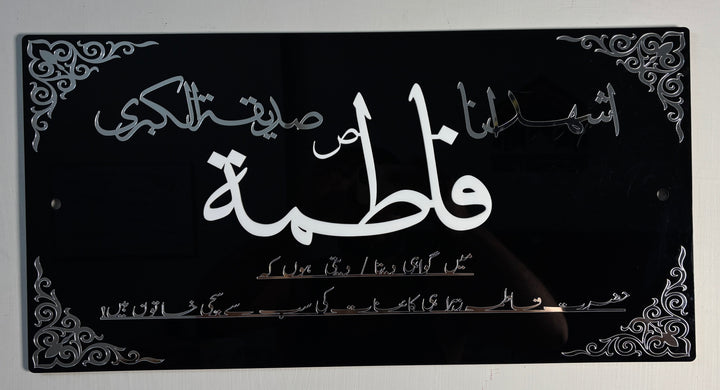 اشھد انا صدیقۃ الکبری
فاطمة ص
میں گواہی دیتا / دیتی ہوں کہ
حضرت فاطمہ زہرا ہی کائنات کی سب سے سچی خاتون ہیں!